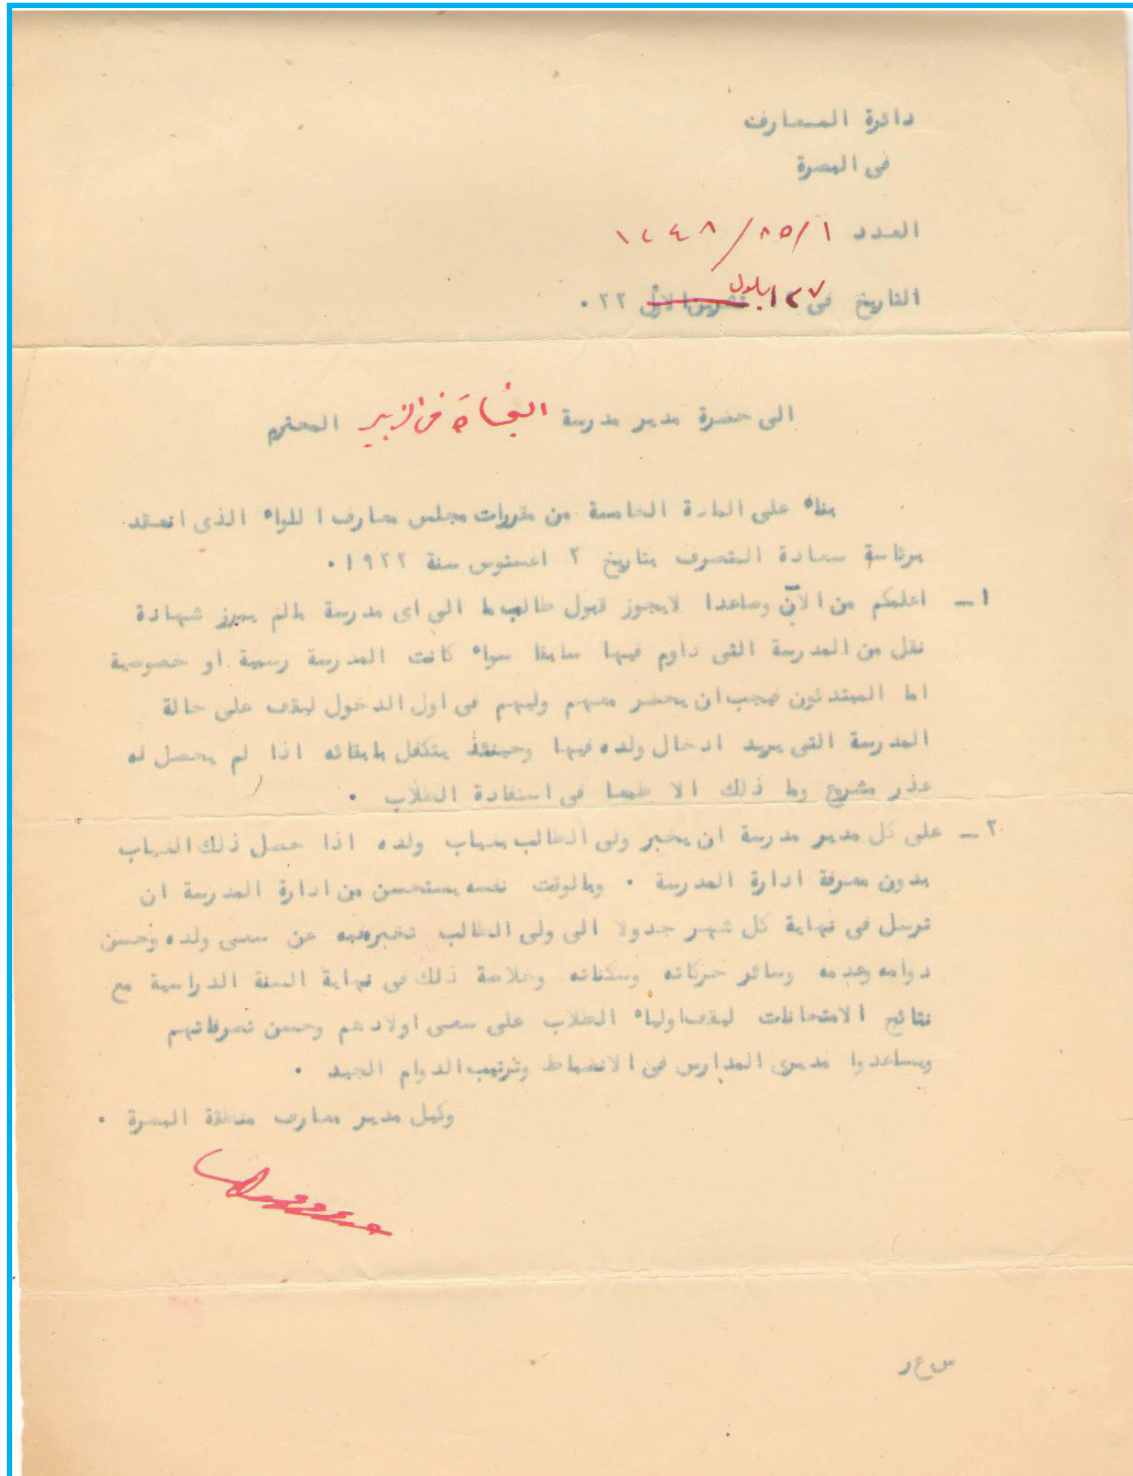 دائرة المعارف
فى البصرة
العدد ٨٥/١ / ١٢٤٨
التاريخ فى ٢٧ ايلول تشرين الاول ٢٢ ٠
الى حضرة مدير مدرسة النجاة فى الزبير المحترم
بناء على المادة الخامسة من مقررات مجلس معارف اللواء الذى انعقد
برئاسة سعادة المتصرف بتاريخ ٢ اغستوس سنة ١٩٢٢ ٠
١ــ اعلمكم من الآن وصاعدا لايجوز قبول طالب ما الى اى مدرسة مالم يبرز شهادة
نقل من المدرسة التى داوم فيها سابقا سواء كانت المدرسة رسمية او خصوصية
اما المبتدئون فيجب ان يحضر معهم وليهم فى اول الدخول ليقف على حالة
المدرسة التى يريد ادخال ولده فيها وحينئذ يتكفل بابقائه اذا لم يحصل له
عذر مشروع وما ذلك الا طمعا فى استفادة الطلاب ٠
٢ــ على كل مدير مدرسة ان يخبر ولى الطالب بغياب ولده اذا حصل ذلك الغياب
بدون معرفة ادارة المدرسة ٠ وبالوقت نفسه يستحسن من ادارة المدرسة ان
ترسل فى نهاية كل شهر جدولا الى ولى الطالب تخبره فيه عن سعى ولده وحسن
دوامه وعدمه وسائر حركاته وسكناته وخلاصة ذلك فى نهاية السنة الدراسية مع
نتائج الامتحانات ليقف اولياء الطلاب على سعى اولادهم وحسن تصرفاتهم
ويساعدوا مديرى المدارس فى الانضباط وترتيب الدوام الجيد ٠
وكيل مدير معارف منطقة البصرة ٠
س ع ر